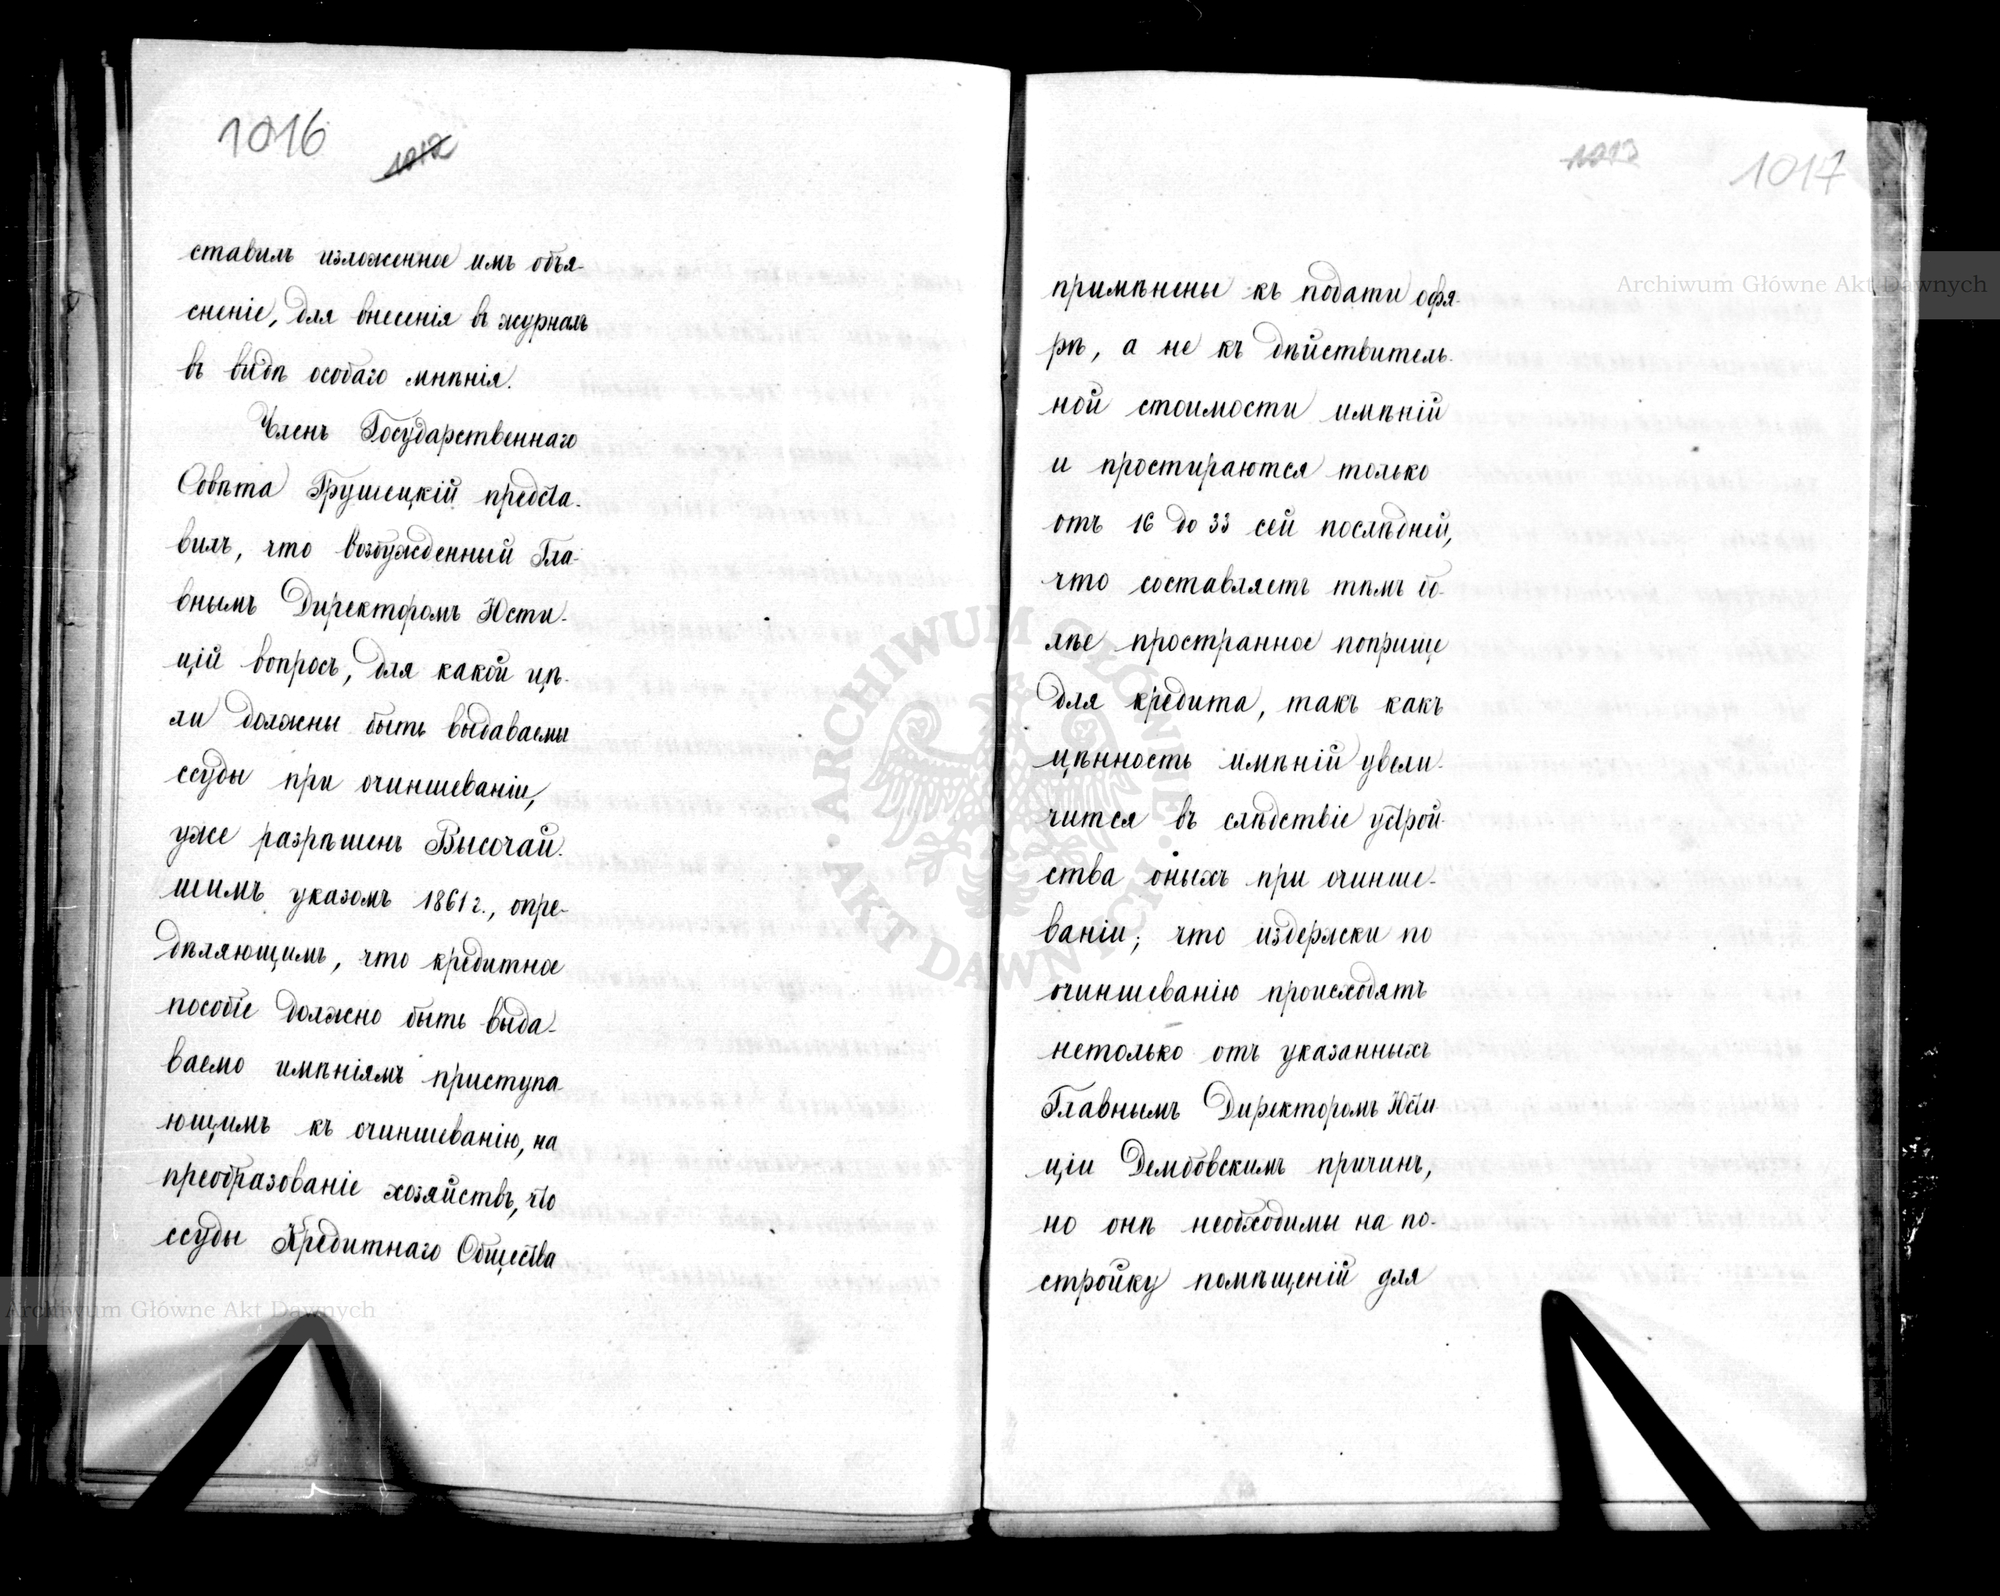 1016
1012
ставилъ изложенное имъ объя-
сненіе, для внесенія въ журналъ
въ видѣ особаго мнѣнія.
Членъ Государственнаго
Совѣта Грушецкій предста-
вилъ, что возбужденный Гла-
внымъ Директоромъ Юсти-
цій вопросъ, для какой цѣ-
ли должны быть выдаваемы
ссуды при очиншеваніи,
уже разрѣшенъ Высочай-
шимъ указомъ 1861 г., опре-
дѣляющимъ, что кредитное
пособіе должно быть выда-
ваемо имѣніямъ приступа-
ющимъ къ очиншеванію, на
преобразованіе хозяйствъ, что
ссуды Кредитнаго Общества
1013
1017
примѣнены къ подати офя-
рѣ, а не къ дѣйствитель-
ной стоимости имѣній
и простираются только
отъ 16 до 33 сей послѣдней,
что составляетъ тѣмъ бо-
лѣе пространное поприще
для кредита, такъ какъ
цѣнность имѣній увели-
чится въ слѣдствіе устрой-
ства оныхъ при очинше-
ваніи; что издержки по
очиншеванію происходятъ
нетолько отъ указанныхъ
Главнымъ Директоромъ Юсти
ціи Дембовскимъ причинъ,
но онѣ необходимы на по-
стройку помѣщеній для
Archiwum Główne Akt Dawnych
Archiwum Główne Akt Dawnych
ARCHIWUM GŁÓWNE AKT DAWNYCH